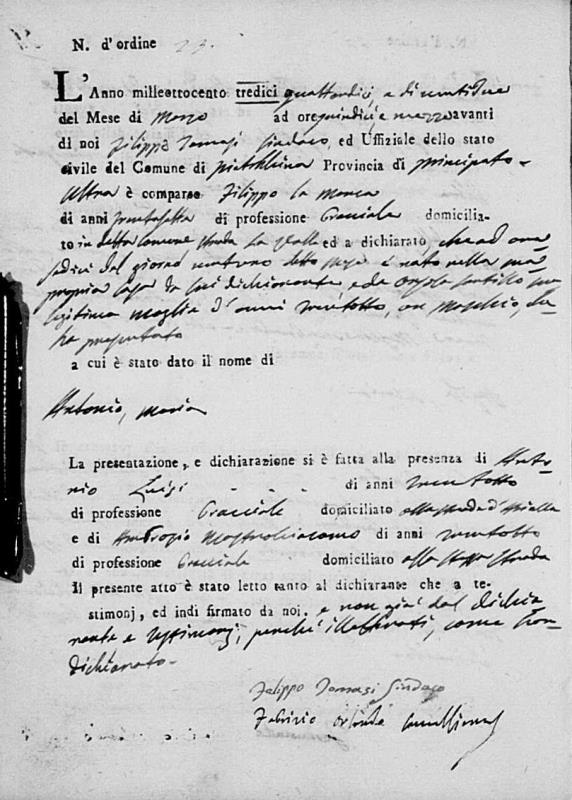 N. d'ordine 23.
L'Anno milleottocento tredici quattordici, e di ventidue
del Mese di Marzo ad ore quindici e mezzo avanti
di noi Filippo Tomasi Sindaco, ed Uffiziale dello stato
civile del Comune di Provincia di Principato
Ultra è comparso Filippo la Marca
di anni trentasette di professione Bracciale domicilia-
to in detto Comune strada La Valle ed a dichiarato che ad ore
sedici del giorno ventuno detto mese è nato nella
propria casa da lui dichiarante, e da Orsola
legittima moglie d'anni ventotto, un maschio, che
ha presentato
a cui è stato dato il nome di
Antonio, Maria
La presentazione, e dichiarazione si è fatta alla presenza di Anto-
nio Luigi di anni ventotto
di professione Bracciale domiciliato alla strada
e di Ambrogio Mastrogiacomo di anni ventotto
di professione Bracciale domiciliato alla stessa strada
Il presente atto è stato letto tanto al dichiarante che a te-
stimonj, ed indi firmato da noi, e non già dal dichia-
rante e testimonj, perché illetterati, come han
dichiarato.
Filippo Tomasi Sindaco
Fabrizio Orlando